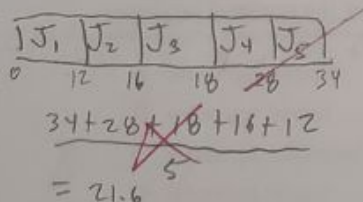 J1 J2 J3 J4 J5
0 12 16 18 28 34
34+28+18+16+12
5
= 21.6